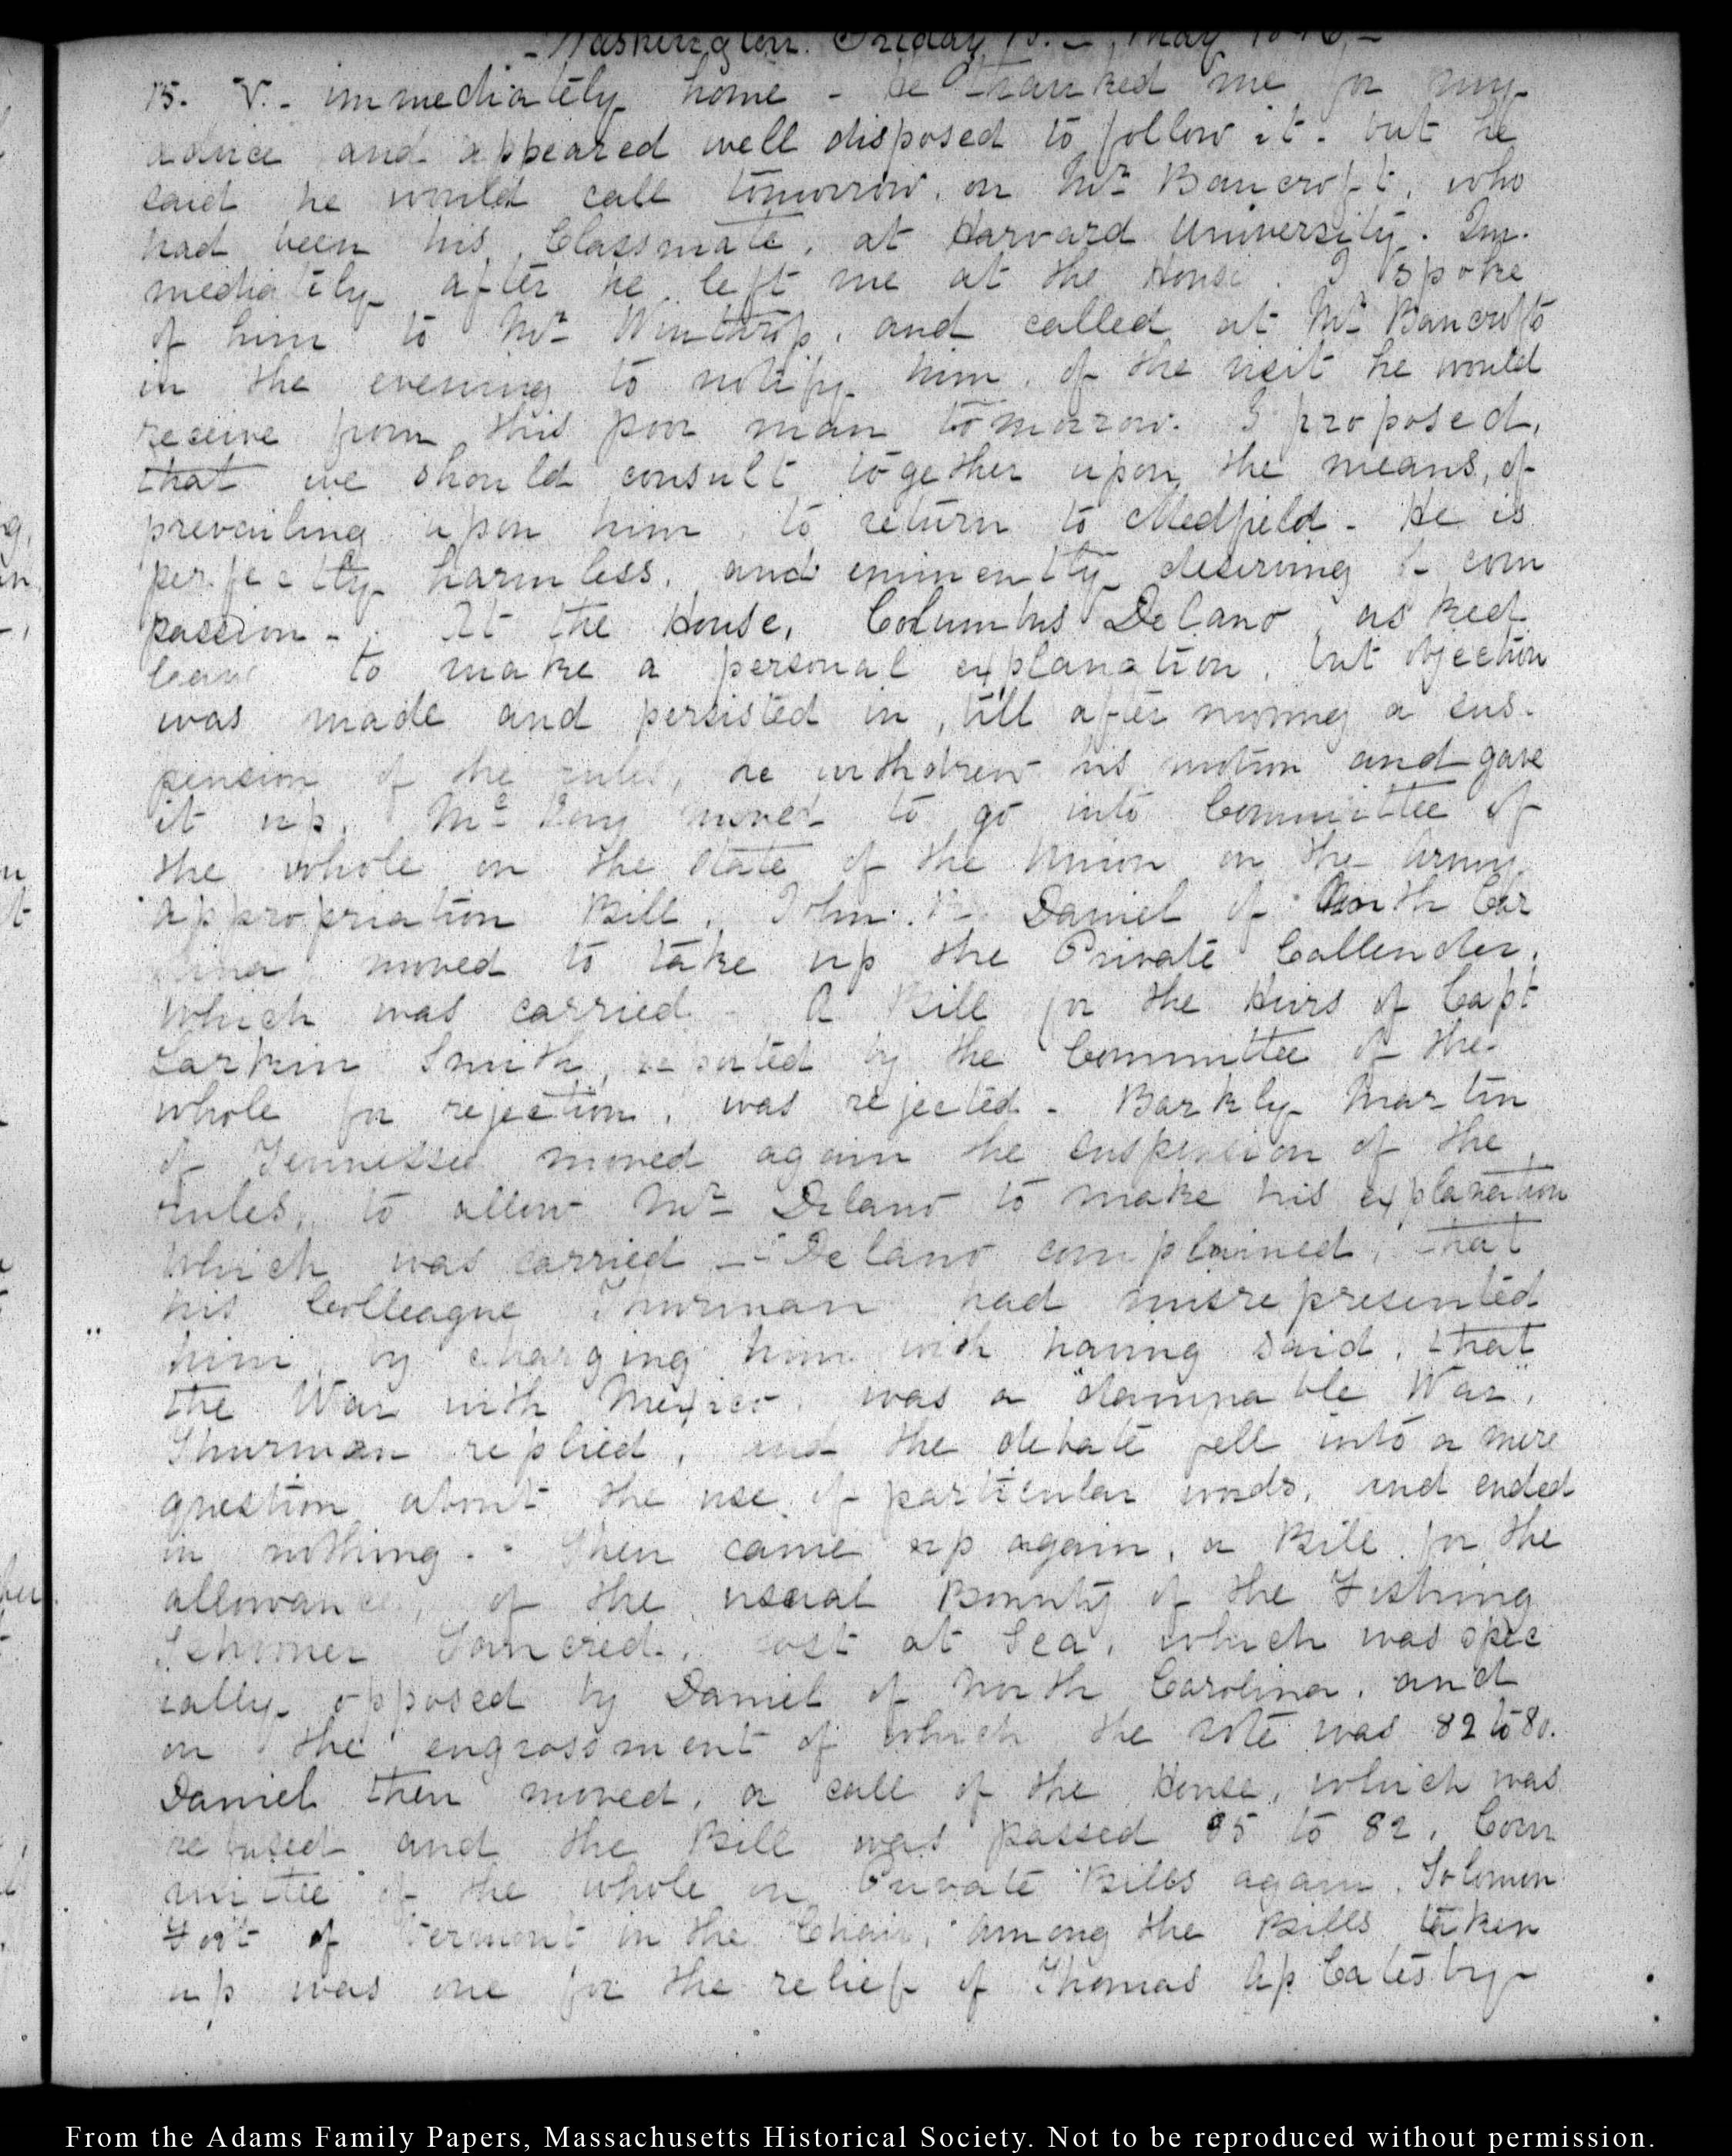 Washington. Friday 15. May 1846
15. V. immediately home - he thanked me for my
advice and appeared well disposed to follow it. but he
said he would call tomorrow, on Mr. Bancroft, who
had been his Classmate, at Harvard University. Im-
mediately after he left me at the House. I spoke
of him to Mr. Winthrop, and called at Mr. Bancroft's
in the evening to notify him, of the visit he would
receive from this poor man tomorrow. I proposed,
that we should consult together upon the means, of
prevailing upon him, to return to Medfield. He is
perfectly harmless, and eminently deserving of com
passion - At the House, Columbus Delano, asked
leave to make a personal explanation, but objection
was made and persisted in, till after moving a sus-
pension of the rules, he withdrew his motion and gave
it up. moved to go into Committee of
the whole on the state of the Union on the Army
appropriation Bill. John R. Daniel of North Car
olina moved to take up the Private Callender,
which was carried - A Bill for the Heirs of Capt
Larkin Smith, reported by the Committee of the
whole for rejection, was rejected - Barkly Martin
of Tennessee moved again the suspension of the
rules, to allow Mr. Delano to make his explanation
which was carried - Delano complained, that
his Colleague Thurman had misrepresented
him by charging him with having said, that
the War with Mexico, was a "damnable War".
Thurman replied, and the debate fell into a mere
question about the use of particular words, and ended
in nothing. - Then came up again, a Bill for the
allowance, of the usual Bounty of the Fishing
Schooner Tancred, lost at Sea, which was spec
ially opposed by Daniel of North Carolina, and
on the engrossment of which the vote was 82 to 80.
Daniel then moved, a call of the House, which was
refused and the Bill was passed 85 to 82. Com
mittee of the whole on Private Bills again. Solomon
Foot of Vermont in the Chair, among the Bills taken
up was one for the relief of Thomas Ap Catesby
From the Adams Family Papers, Massachusetts Historical Society. Not to be reproduced without permission.